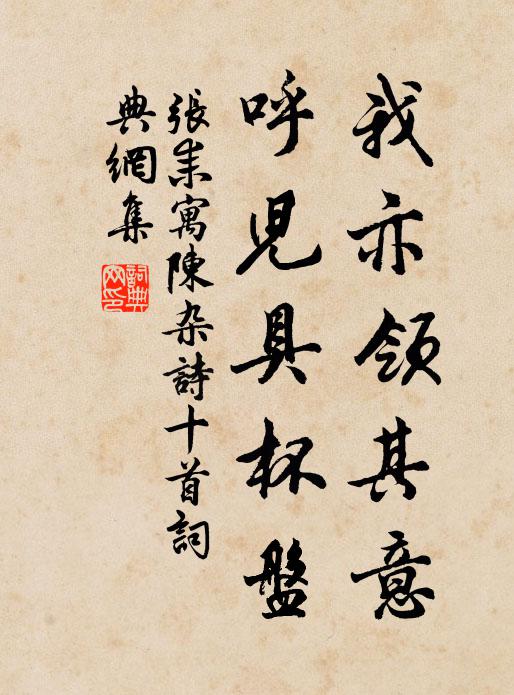 我亦領其意
呼兒具杯盤
張耒寓陳杂詩十首詞
典網集
詞典
网印